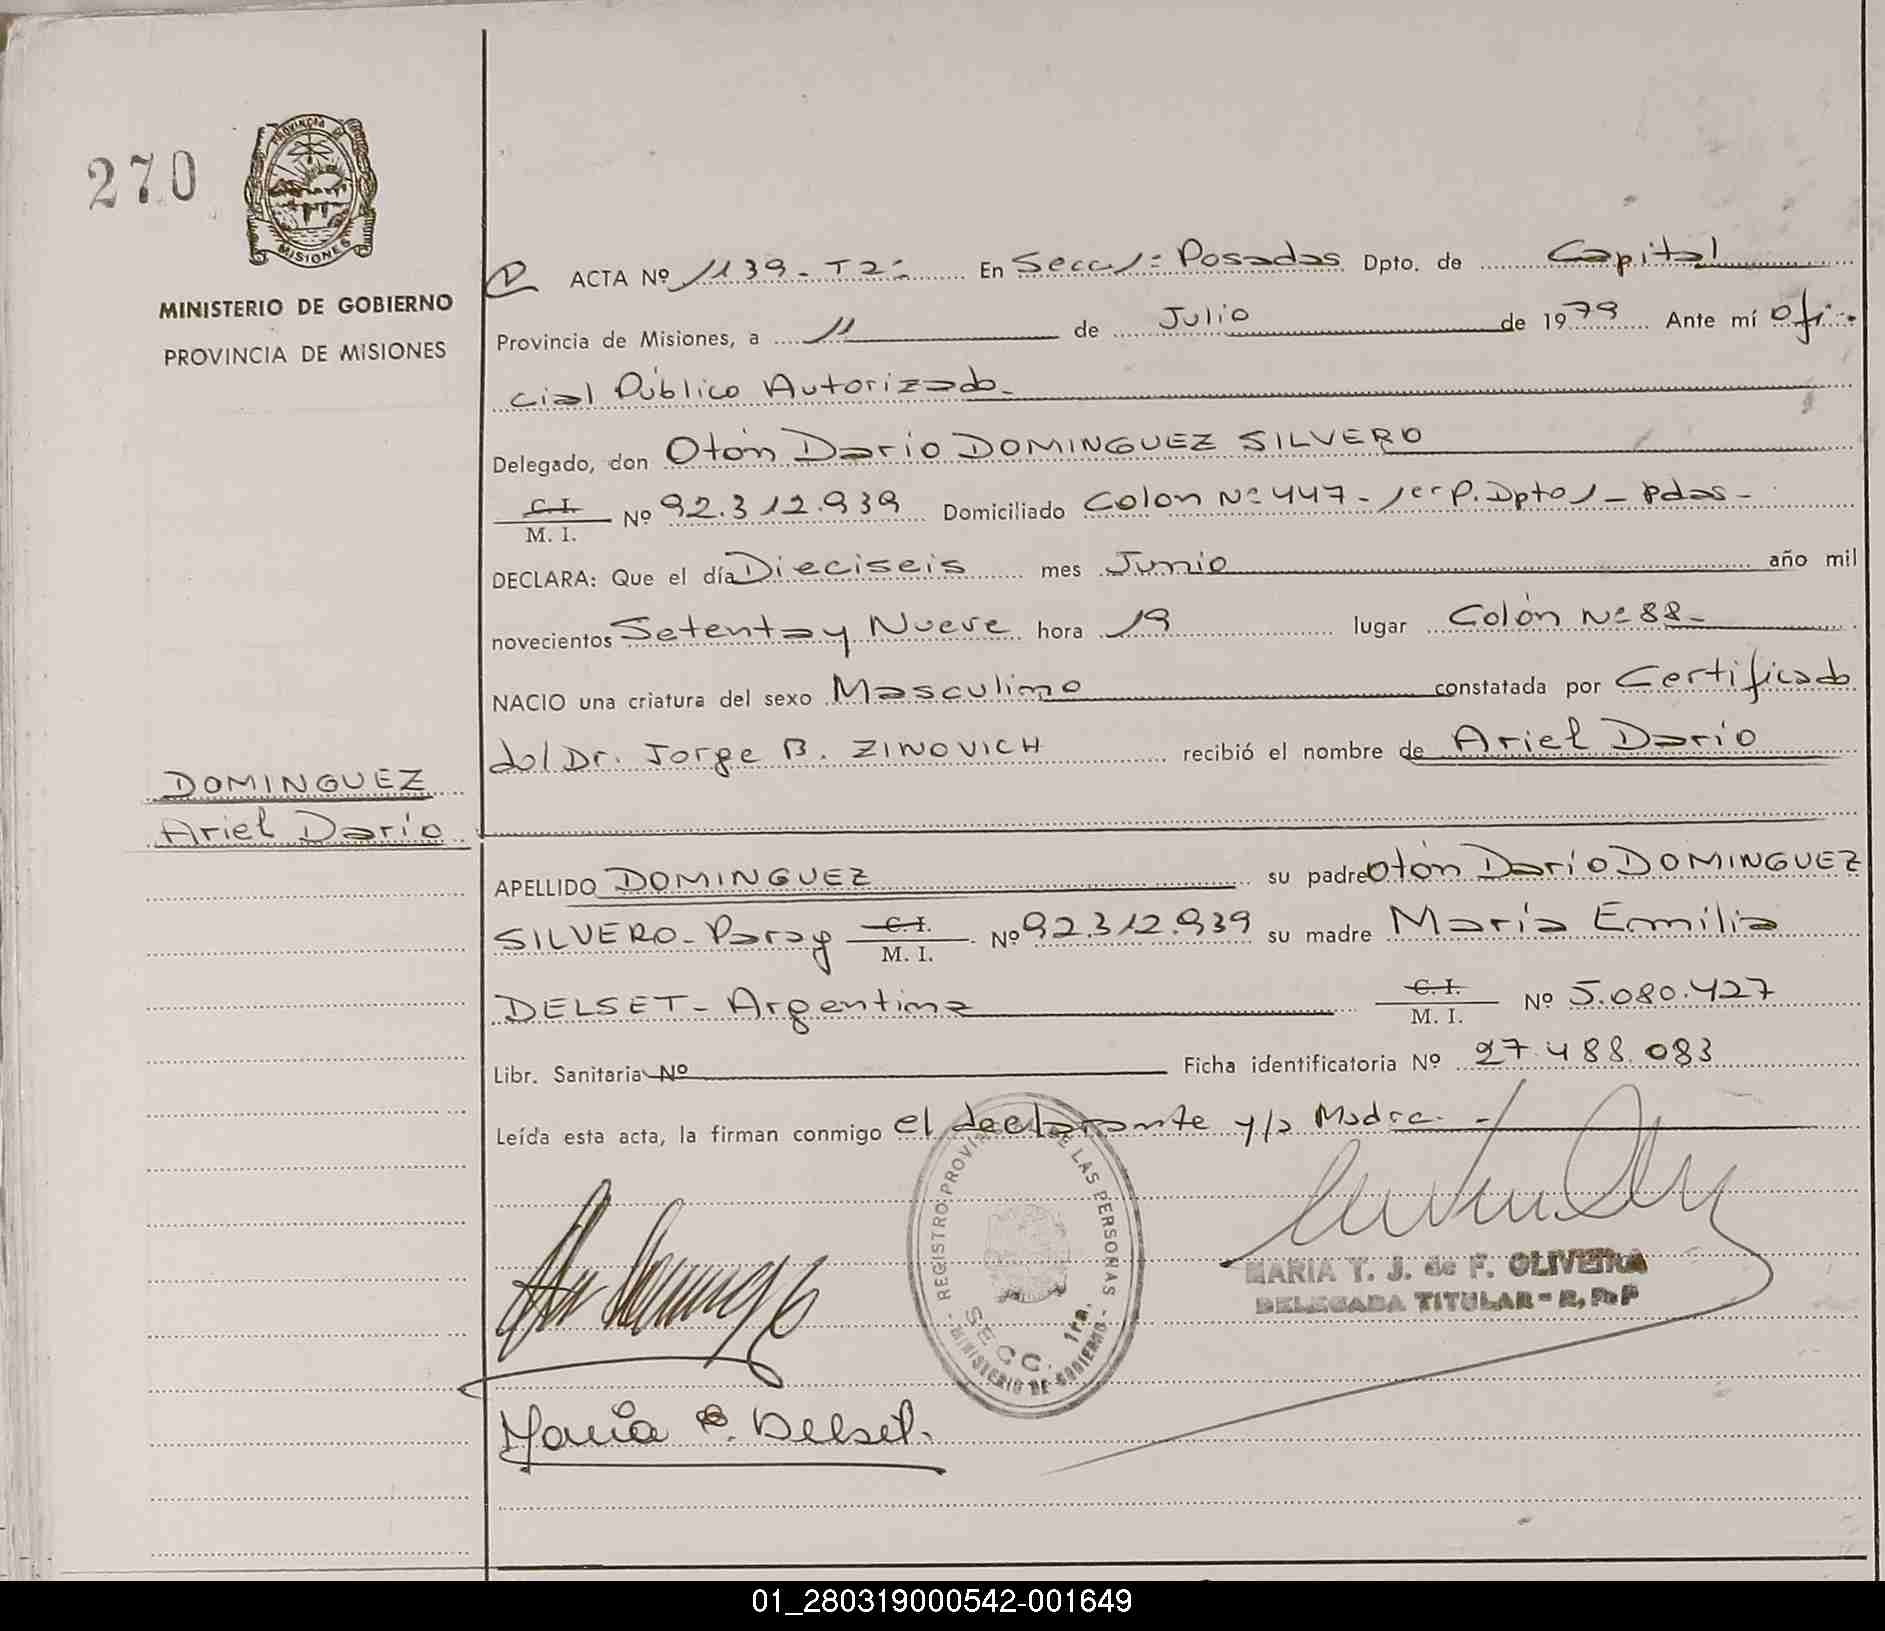 270
PROVINCIA DE
MISIONES
MINISTERIO DE GOBIERNO
PROVINCIA DE MISIONES
ACTA Nº 1139 - T2º En Secc 1ª Posadas Dpto. de Capital
Provincia de Misiones, a 11 de Julio de 1979 Ante mí Ofi-
cial Público Autorizado
Delegado, don Otón Darío DOMINGUEZ SILVERO
C.I.
M. I. Nº 92.312.939 Domiciliado Colon Nº 447 - 1er P. Dpto 1 - Pdas -
DECLARA: Que el día Dieciseis mes Junio año mil
novecientos Setenta y Nueve hora 19 lugar Colón Nº 88 -
NACIO una criatura del sexo Masculino constatada por Certificado
del Dr. Jorge B. ZINOVICH recibió el nombre de Ariel Dario
DOMINGUEZ
Ariel Darío
APELLIDO DOMINGUEZ su padre Otón Darío DOMINGUEZ
SILVERO - Paray C.I.
M. I. Nº 92.312.939 su madre María Emilia
DELSET - Argentina C.I.
M. I. Nº 5.080.427
Libr. Sanitaria Nº Ficha identificatoria Nº 27.488.083
Leída esta acta, la firman conmigo el declarante y la Madre. -
REGISTRO PROVIN DE LAS PERSONAS
SECC. 1ra.
MINISTERIO DE GOBIERNO
MARIA T. J. de F. OLIVEIRA
DELEGADA TITULAR - R. P. P
María E. Delset.
01_280319000542-001649